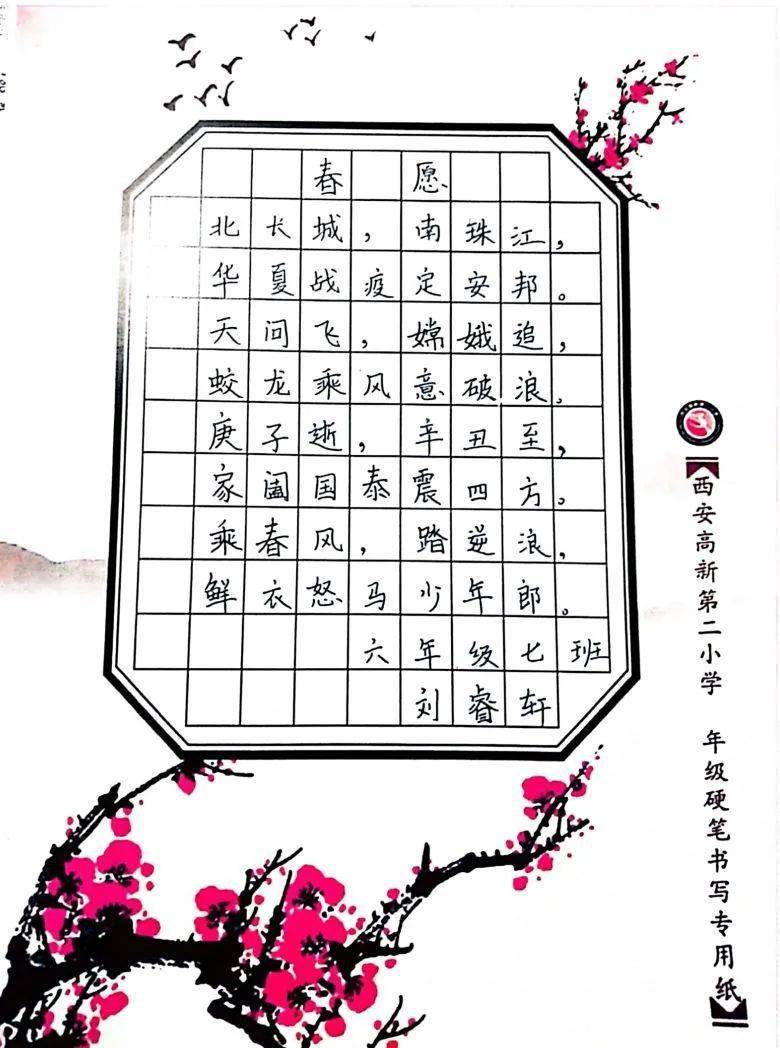 春愿
北长城，南珠江，
华夏战疫定安邦。
天问飞，嫦娥追，
蛟龙乘风意破浪。
庚子逝，辛丑至，
家阖国泰震四方。
乘春风，踏逆浪，
鲜衣怒马少年郎。
六年级七班
刘睿轩
西安高新第二小学 年级硬笔书写专用纸